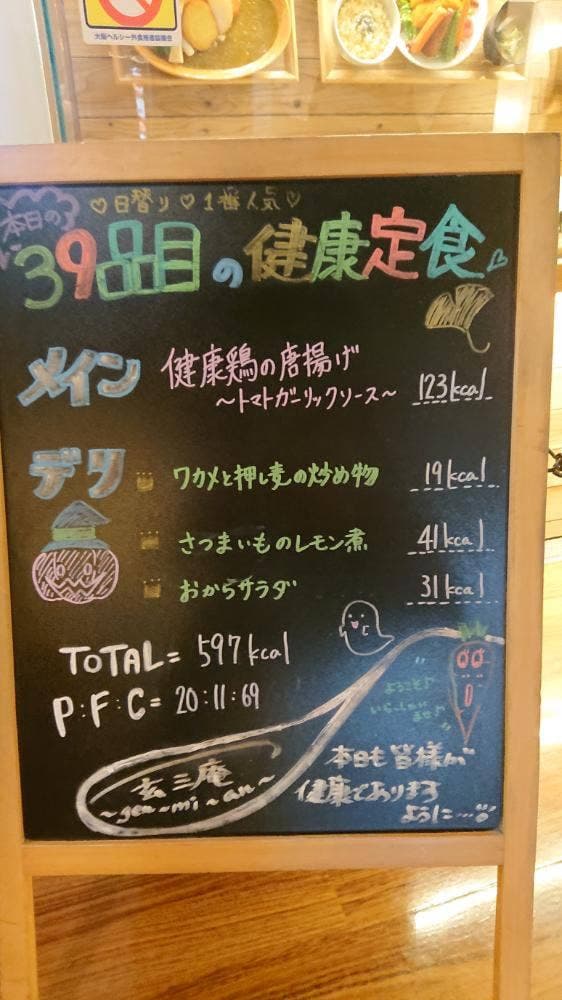 大阪ヘルシー外食推進協議会
本日の
♡日替り♡1番人気♡
39品目の健康定食
メイン
健康鶏の唐揚げ
～トマトガーリックソース～
123kcal
デリ
ワカメと押し麦の炒め物
19kcal
さつまいものレモン煮
41kcal
おからサラダ
31kcal
TOTAL= 597kcal
P:F:C= 20:11:69
ようこそ♪
いらっしゃい
ませ♪
玄三庵
～gen-mi-an～
本日も皆様が
健康であります
ように…